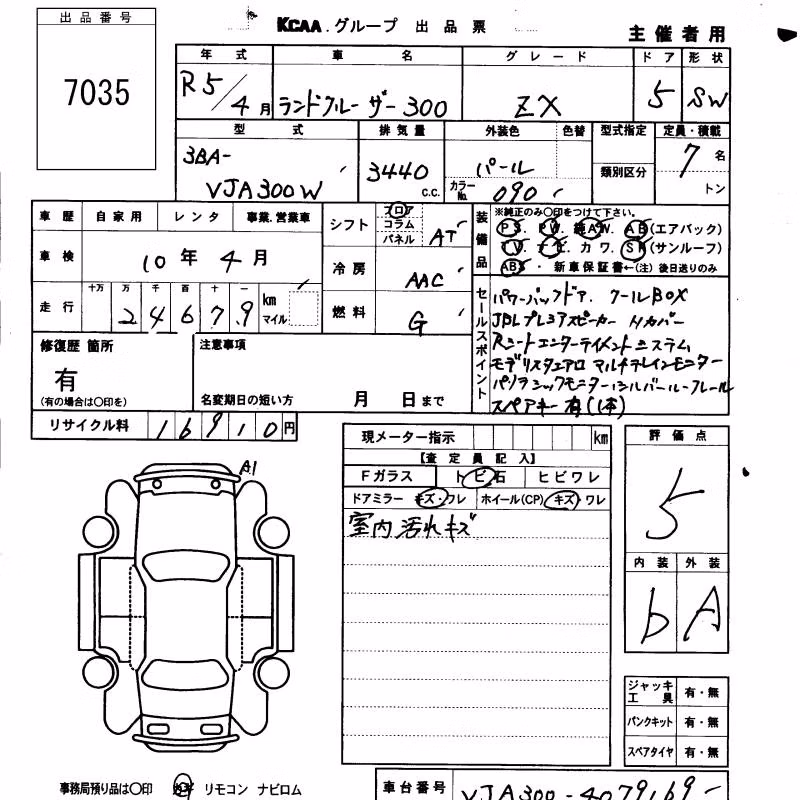 出品番号
7035
KCAA.グループ 出品票
主催者用
年式 車名 グレード ドア 形状
R5/4月 ランドクルーザー300 ZX 5 SW
型式 排気量 外装色 色替 型式指定 定員・積載
3BA-
VJA300W 3440 C.C. パール カラーNo. 090 類別区分 7名
トン
車歴 自家用 レンタ 事業.営業車
車検 10年4月
走行 十万 万 千 百 十 一
24679 km マイル
シフト フロア コラム パネル AT
冷房 AAC
燃料 G
装備品 ※純正のみ〇印をつけて下さい。
PS. PW. 純AW. AB(エアバック)
TV. ナビ. カワ. SR(サンルーフ)
ABS・新車保証書←(注)後日送りのみ
セールスポイント
パワーバックドア. クールBOX
JBLプレミアスピーカー Hカバー
Rシートエンターテイメントシステム
モデリスタエアロ マルチテレインモニター
パノラミックモニター シルバールーフレール
スペアキー有(1本)
修復歴 箇所 注意事項
有
(有の場合は〇印を) 名変期日の短い方 月 日まで
リサイクル料 16910円
現メーター指示 km
【査定員記入】
Fガラス トビ石 ヒビワレ
ドアミラー キズ・ワレ ホイール(CP) キズ・ワレ
室内汚れキズ
A1
評価点
5
内装 外装
b A
ジャッキ工具 有・無
パンクキット 有・無
スペアタイヤ 有・無
事務局預り品は〇印 カギ リモコン ナビロム
車台番号 VJA300-4079169